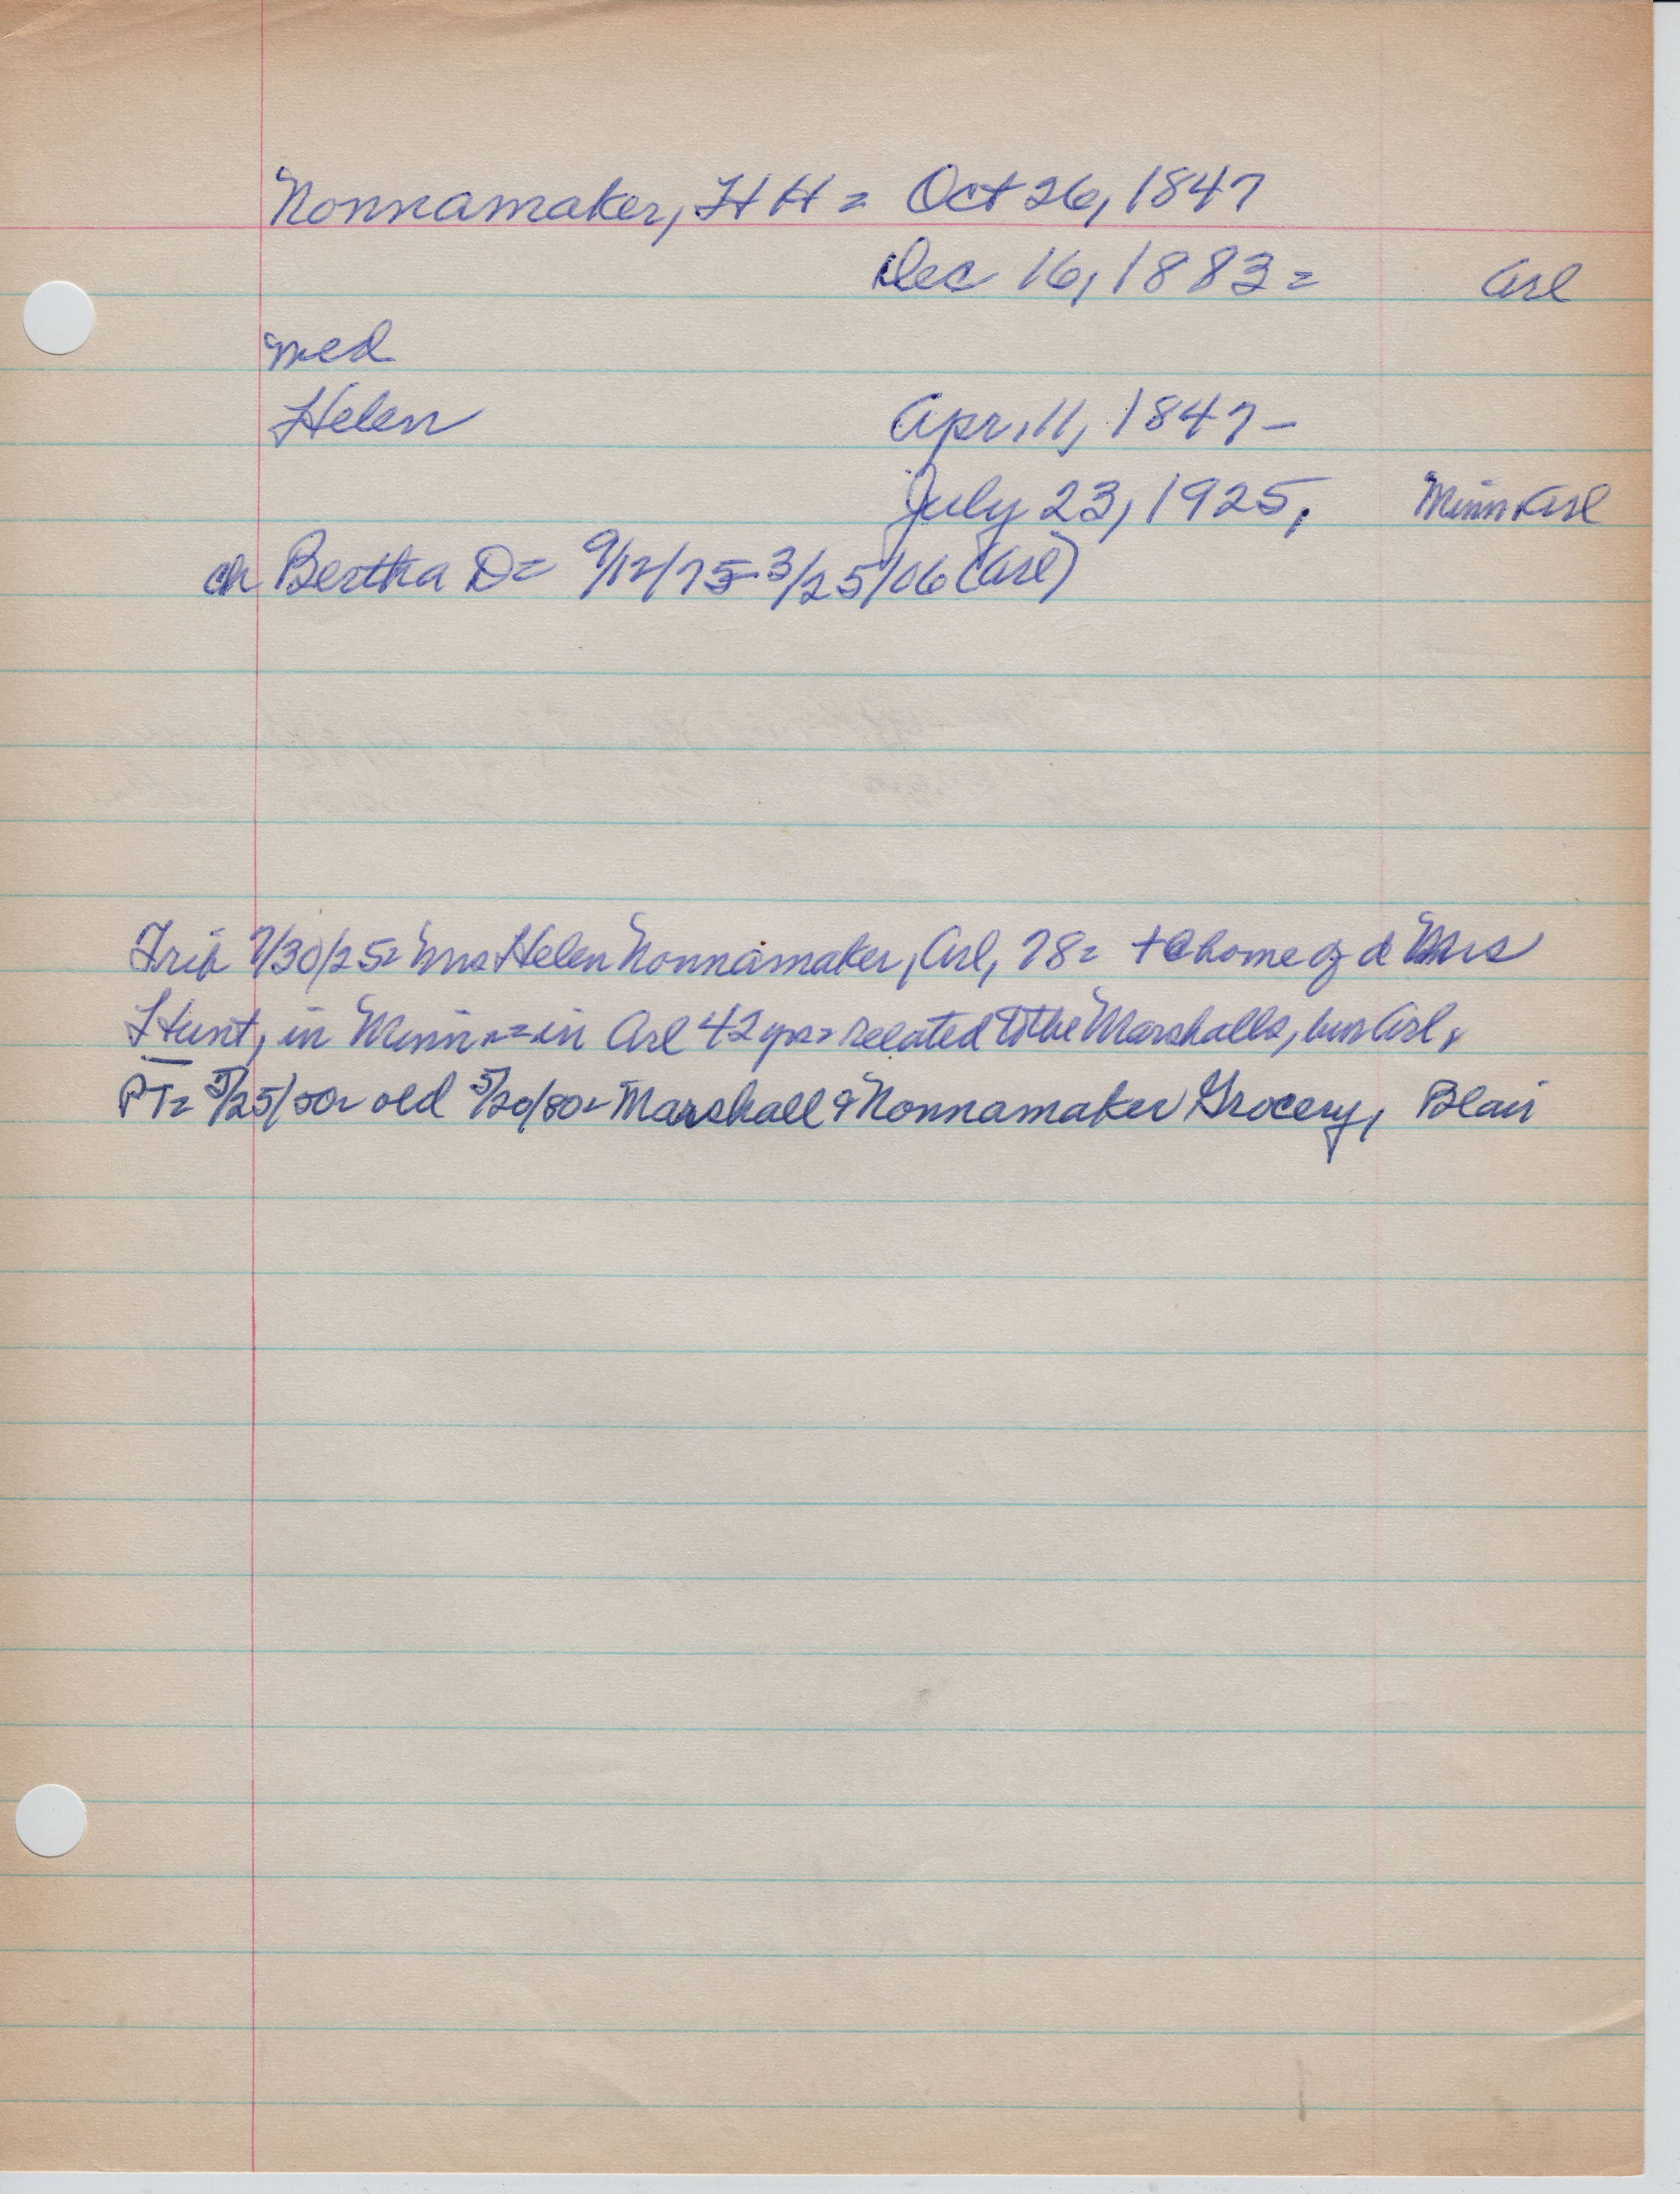 Nonnamaker, H H = Oct 26, 1847
Dec 16, 1883 = Arl
med
Helen Apr 11, 1847 -
July 23, 1925, Minn Arl
ch Bertha D = 9/12/75 - 3/25/06 (Arl)
Trib 7/30/25 = Mrs Helen Nonnamaker, Arl, 78 = + @ home of d Mrs
Hunt, in Minn = in Arl 42 yrs = related to the Marshalls, bur Arl,
PT = 5/25/50 - old 5/20/80 - Marshall & Nonnamaker Grocery, Blair